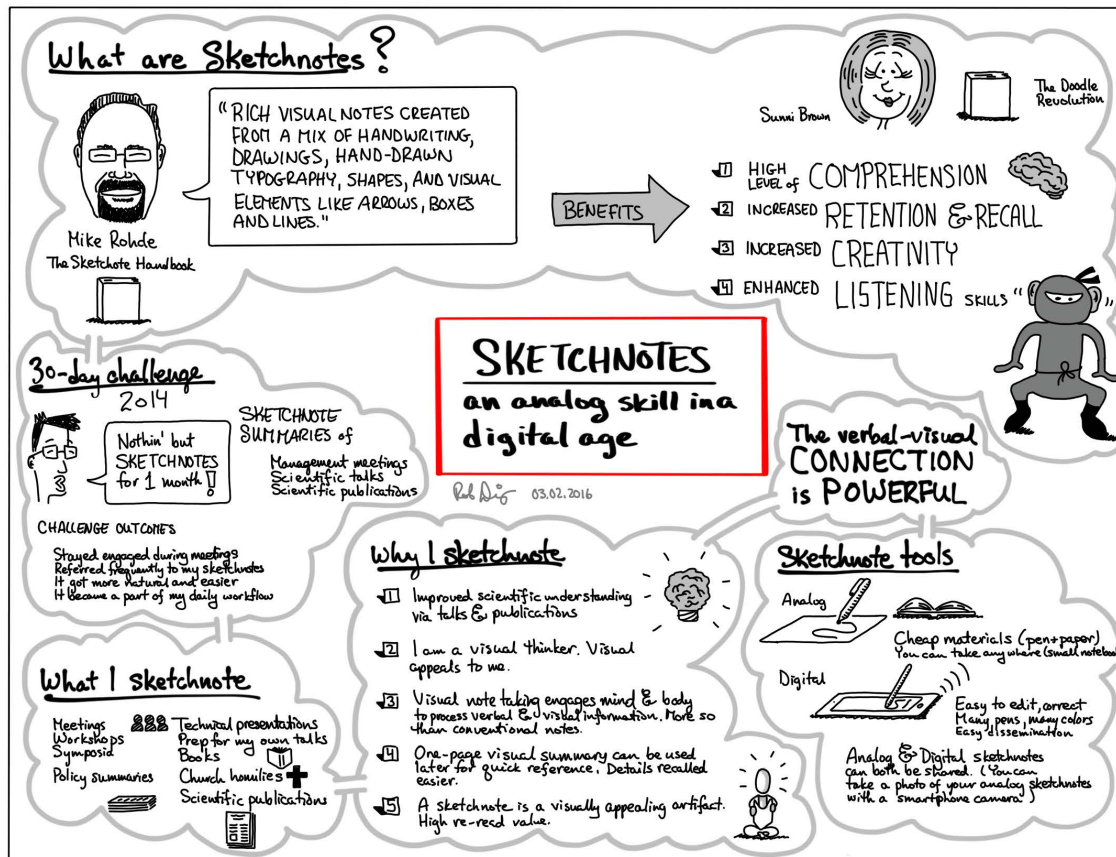 What are Sketchnotes?
"RICH VISUAL NOTES CREATED
FROM A MIX OF HANDWRITING,
DRAWINGS, HAND-DRAWN
TYPOGRAPHY, SHAPES, AND VISUAL
ELEMENTS LIKE ARROWS, BOXES
AND LINES."
Mike Rohde
The Sketchote Handbook
BENEFITS
Sunni Brown
The Doodle
Revolution
1 HIGH LEVEL of COMPREHENSION
2 INCREASED RETENTION & RECALL
3 INCREASED CREATIVITY
4 ENHANCED LISTENING SKILLS
SKETCHNOTES
an analog skill in a
digital age
03.02.2016
30-day challenge
2014
Nothin' but
SKETCHNOTES
for 1 month!
SKETCHNOTE
SUMMARIES of
Management meetings
Scientific talks
Scientific publications
CHALLENGE OUTCOMES
Stayed engaged during meetings
Referred frequently to my sketchnotes
It got more natural and easier
It became a part of my daily workflow
What I sketchnote
Meetings
Workshops
Symposia
Policy summaries
Technical presentations
Prep for my own talks
Books
Church homilies
Scientific publications
Why I sketchnote
1 Improved scientific understanding
via talks & publications
2 I am a visual thinker. Visual
appeals to me.
3 Visual note taking engages mind & body
to process verbal & visual information. More so
than conventional notes.
4 One-page visual summary can be used
later for quick reference. Details recalled
easier.
5 A sketchnote is a visually appealing artifact.
High re-read value.
The verbal-visual
CONNECTION
is POWERFUL
Sketchnote tools
Analog
Cheap materials (pen+paper)
You can take any where (small notebook
Digital
Easy to edit, correct
Many pens, many colors
Easy dissemination
Analog & Digital sketchnotes
can both be shared. (You can
take a photo of your analog sketchnotes
with a smartphone camera!)